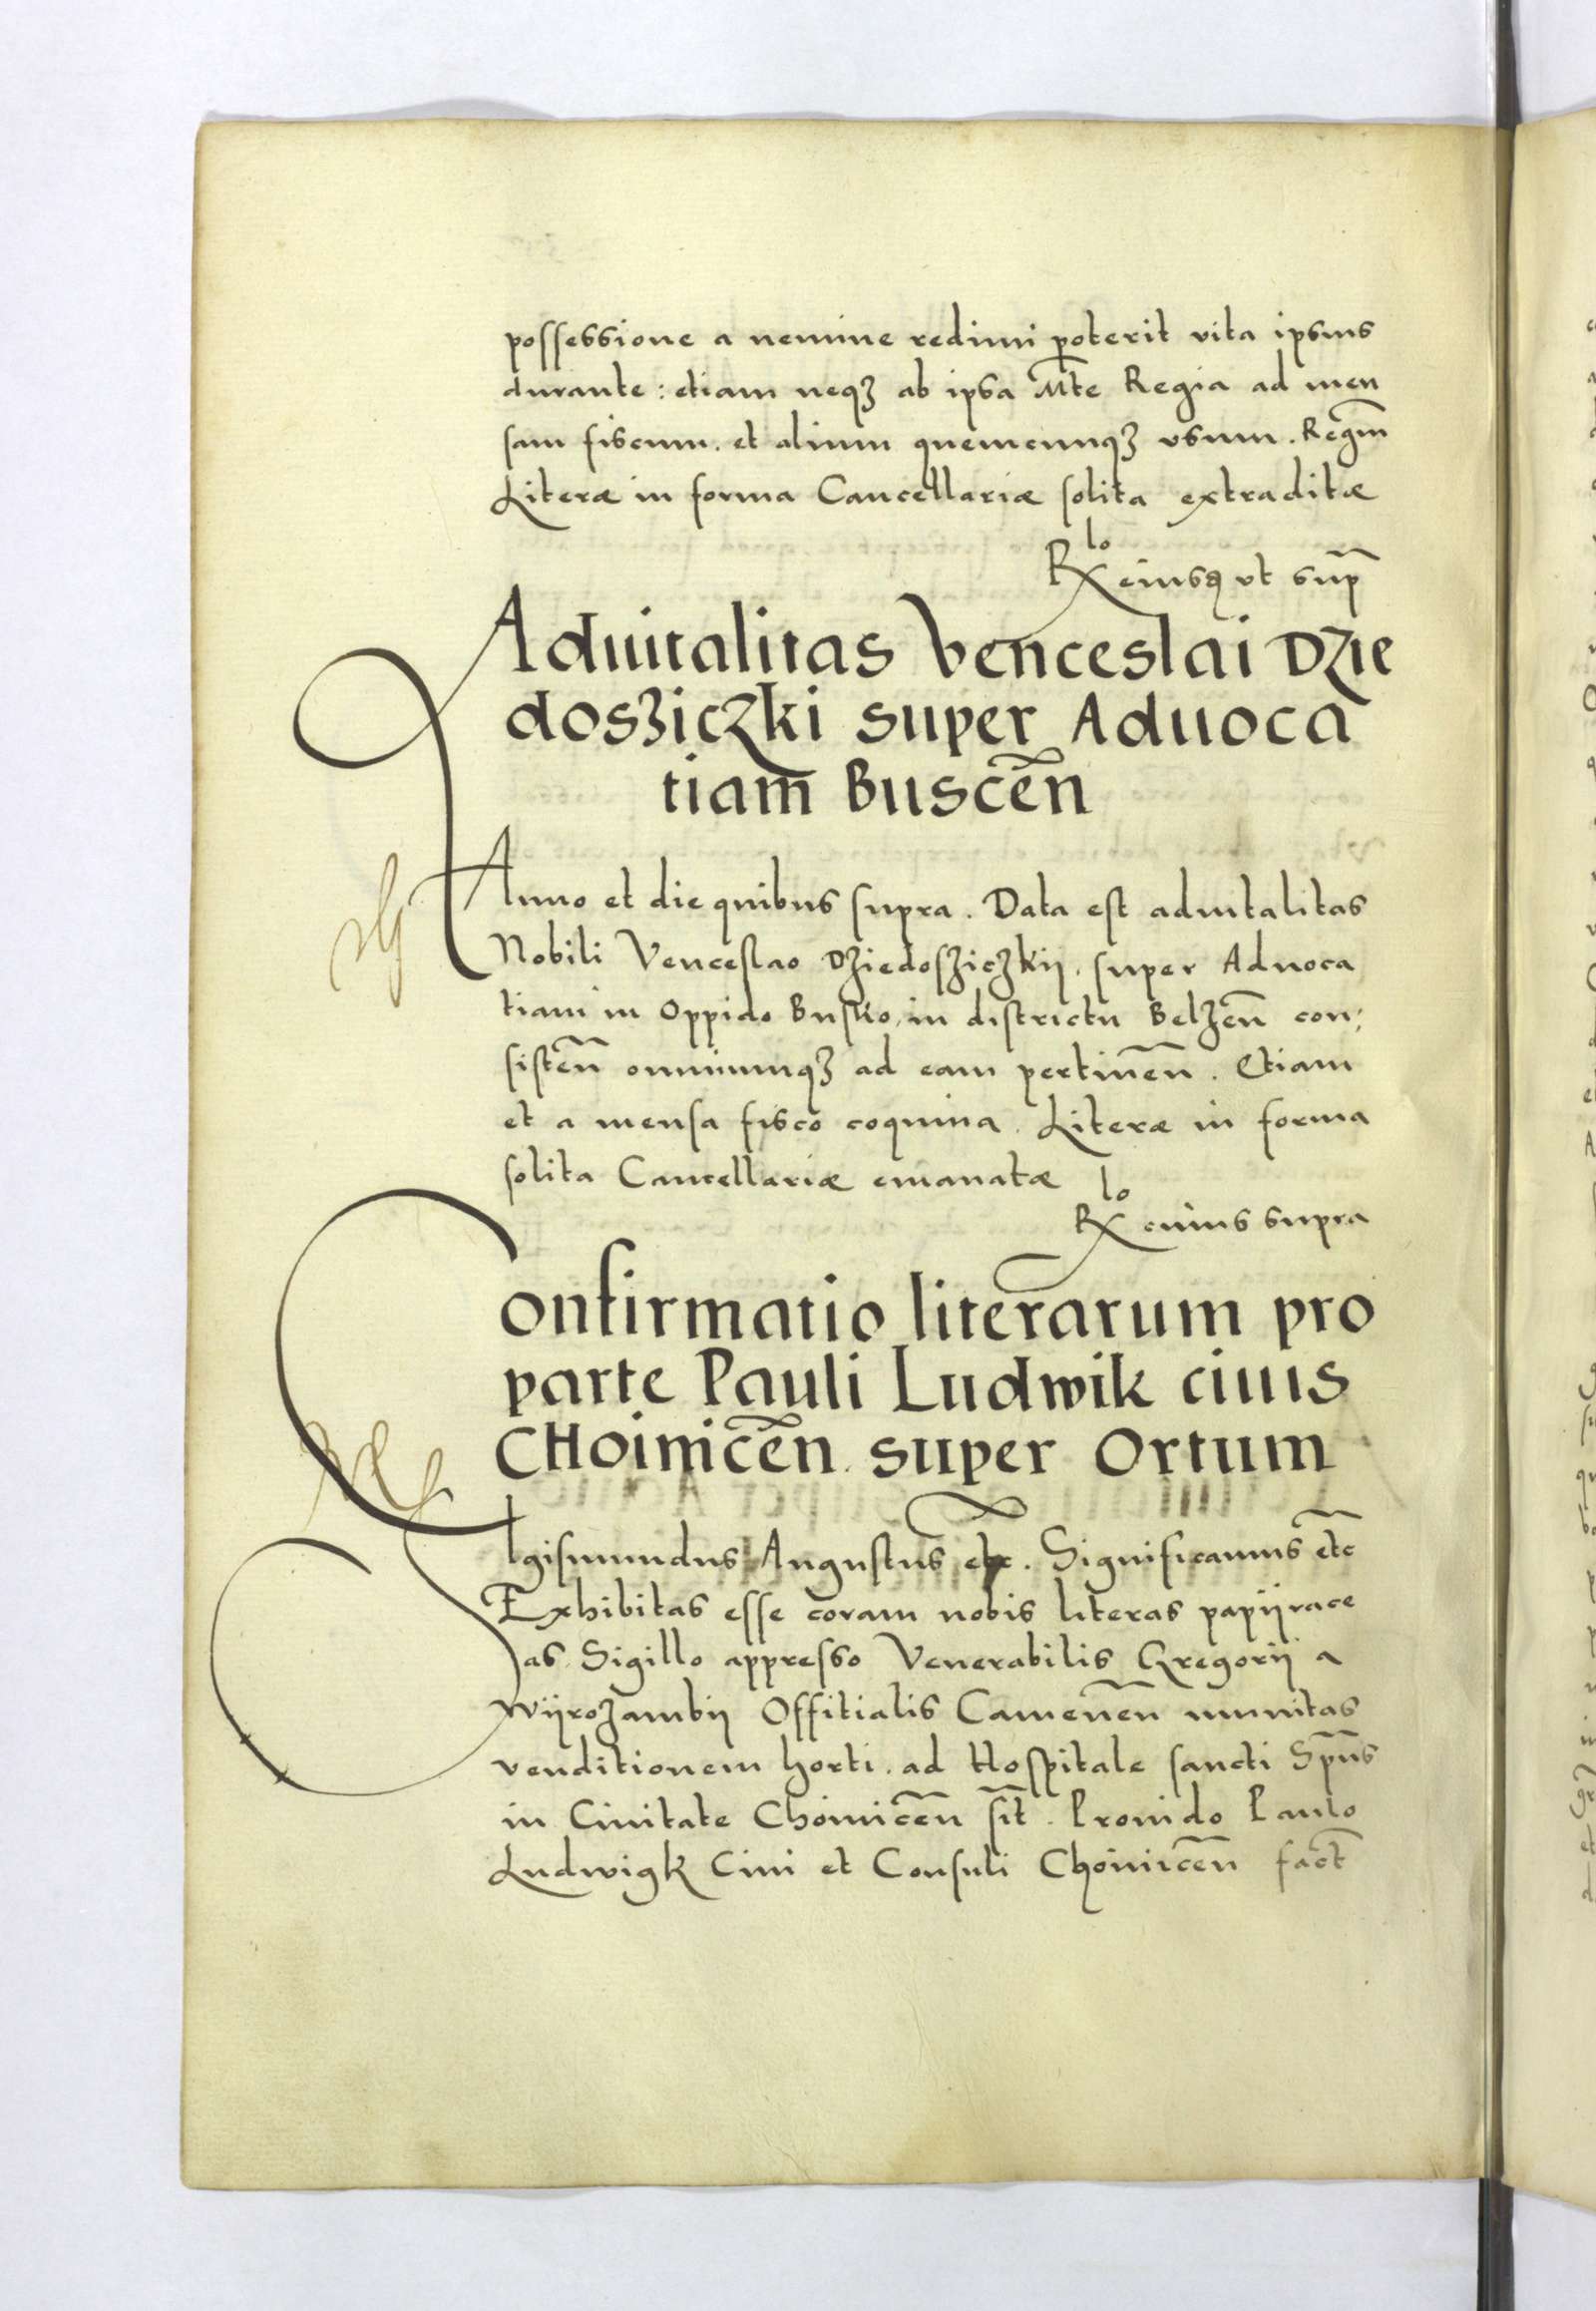 possessione a nemine redimi poterit vita ipsius
durante: etiam neqꝫ ab ipsa Mte Regia ad men
sam fiscum. et alium quemcunqꝫ vsum. Regm̄
Literæ in forma Cancellariæ solita extraditæ
Rlo eiusq vt sup̄
Aduitalitas Venceslai Dzie
dosziczki super Aduoca
tiam Buscen̄
Anno et die quibus supra. Data est aduitalitas
Nobili Venceslao Dziedosziczkij. super Aduoca
tiam in Oppido Busko, in districtu Belzen̄ con:
sisten̄ omniumqꝫ ad eam pertinen̄. Etiam
et a mensa fisco coquina. Literæ in forma
solita Cancellariæ emanatæ
Rlo cuius supra
Confirmatio literarum pro
parte Pauli Ludwik ciuis
CHoinicen̄. super Ortum
Sigismundus Augustus etc. Significamus etc̄
Exhibitas esse coram nobis literas papijrace
as Sigillo appresso Venerabilis Gregorij a
Wijrozambij Offitialis Camenen̄ munitas
venditionem horti. ad Hospitale sancti Sp̄us
in Ciuitate Choinicen̄ sit̄. Prouido Paulo
Ludwigk Ciui et Consuli Choinicen̄ fact̄